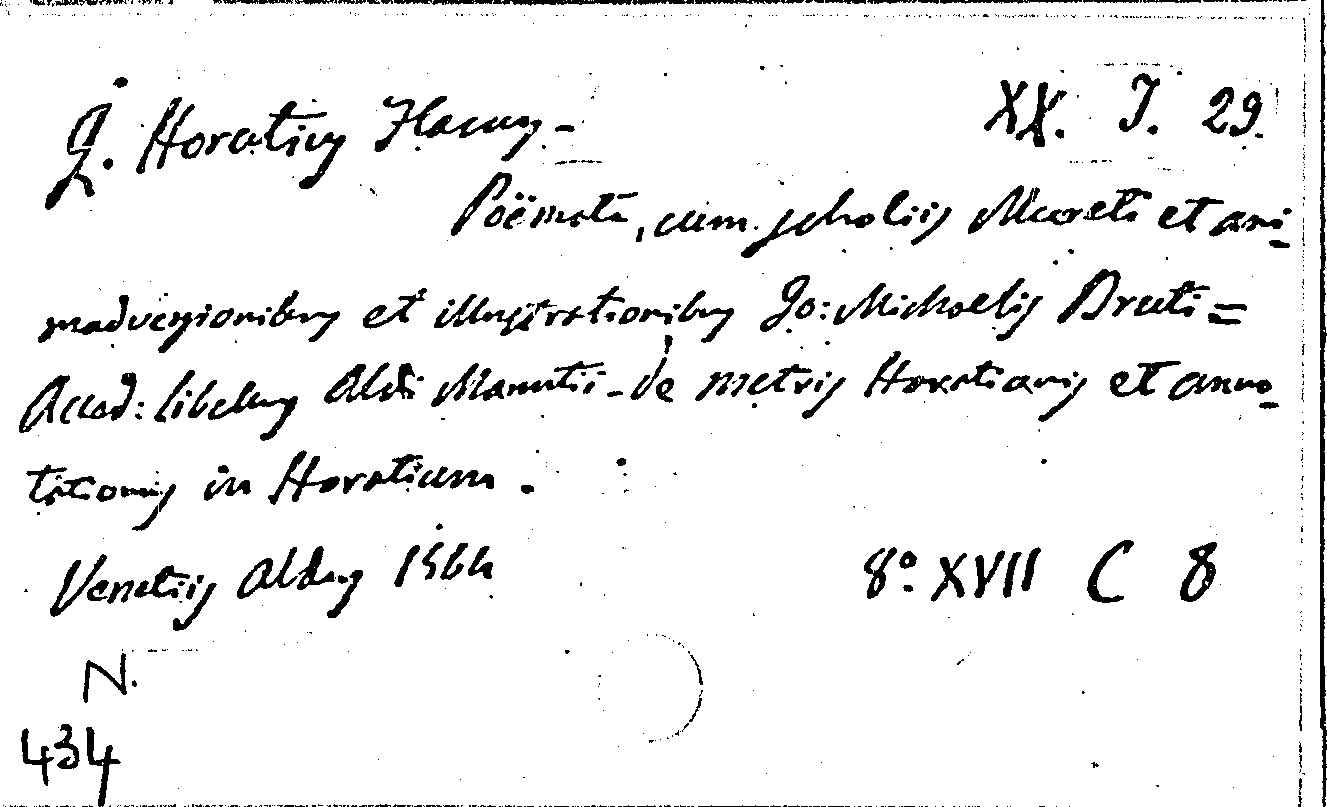 Q. Horatius Flacus - XX. J. 29.
Poëmata, cum scholiis Mureti et ani-
madversionibus et illustrationibus Jo: Michaelis Bruti =
Acced: libellus Aldi Manutii - de metris Horatianis et anno-
tationis in Horatium.
Venetiis Aldus 1564 8º XVII C 8
N.
434